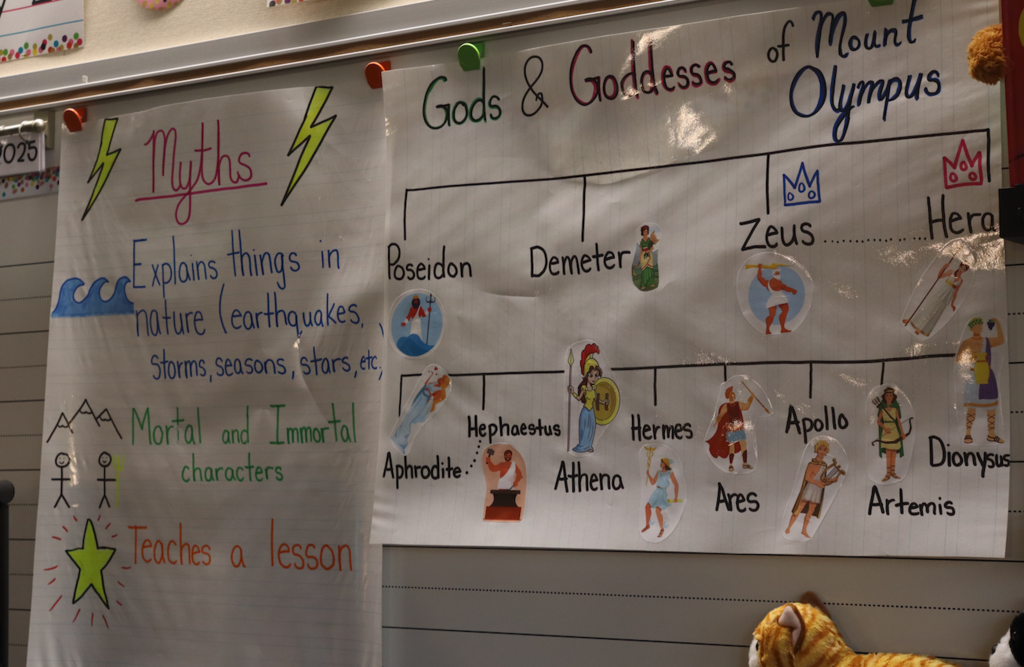 2025
Myths
Explains things in
nature (earthquakes,
storms, seasons, stars, etc,)
Mortal and Immortal
characters
Teaches a lesson
Gods & Goddesses of Mount
Olympus
Poseidon
Demeter
Zeus
Hera
Aphrodite
Hephaestus
Athena
Hermes
Ares
Apollo
Artemis
Dionysus